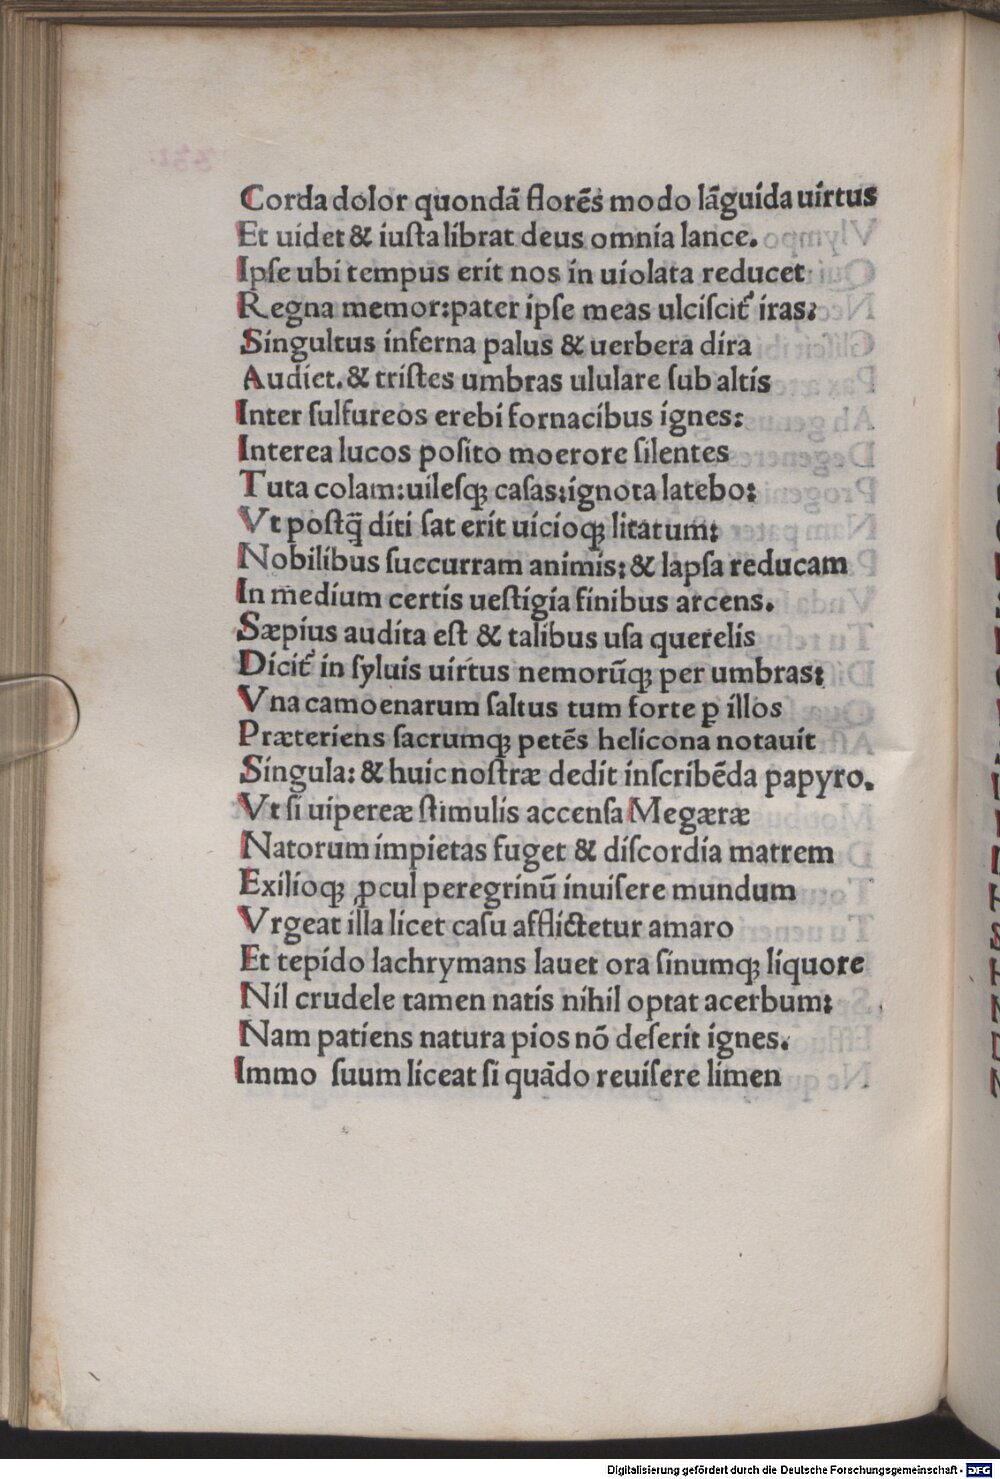 Corda dolor quondã florẽs modo lãguida uirtus
Et uidet & iuſta librat deus omnia lance.
Ipſe ubi tempus erit nos in uiolata reducet
Regna memor:pater ipſe meas ulciſcit᷑ iras:
Singultus inferna palus & uerbera dira
Audiet.& triſtes umbras ululare ſub altis
Inter ſulfureos erebi fornacibus ignes:
Interea lucos poſito moerore ſilentes
Tuta colam:uileſqꝫ caſas:ignota latebo:
Vt poſtq̃ diti ſat erit uicioqꝫ litatum:
Nobilibus ſuccurram animis:& lapſa reducam
In medium certis ueſtigia finibus arcens.
Sæpius audita eſt & talibus uſa querelis
Dicit᷑ in ſyluis uirtus nemorũqꝫ per umbras:
Vna camoenarum ſaltus tum forte ꝑ illos
Præteriens ſacrumqꝫ petẽs helicona notauit
Singula: & huic noſtræ dedit inſcribẽda papyro.
Vt ſi uipereæ ſtimulis accenſa Megæræ
Natorum impietas fuget & diſcordia matrem
Exilioqꝫ ꝓcul peregrinũ inuiſere mundum
Vrgeat illa licet caſu afflictetur amaro
Et tepido lachrymans lauet ora ſinumqꝫ liquore
Nil crudele tamen natis nihil optat acerbum:
Nam patiens natura pios nõ deſerit ignes.
Immo ſuum liceat ſi quãdo reuiſere limen
Digitalisierung gefördert durch die Deutsche Forschungsgemeinschaft - DFG